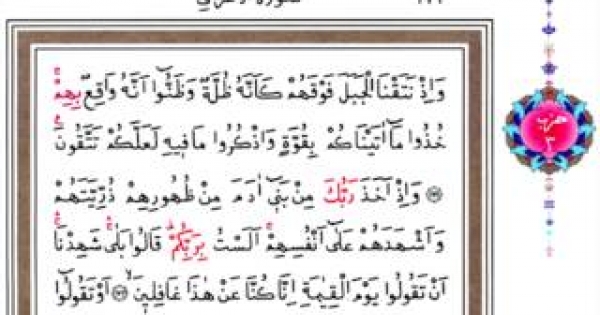 وَاِذْ نَتَقْنَا الْجَبَلَ فَوْقَهُمْ كَاَنَّهُ ظُلَّةٌ وَظَنُّوا اَنَّهُ وَاقِعٌ بِهِمْۚ
خُذُوا مَٓا اٰتَيْنَاكُمْ بِقُوَّةٍ وَاذْكُرُوا مَا فِيهِ لَعَلَّكُمْ تَتَّقُونَ۟
﴿١٧١﴾ وَاِذْ اَخَذَ رَبُّكَ مِنْ بَنٓي اٰدَمَ مِنْ ظُهُورِهِمْ ذُرِّيَّتَهُمْ
وَاَشْهَدَهُمْ عَلٰٓى اَنْفُسِهِمْۚ اَلَسْتُ بِرَبِّكُمْۜ قَالُوا بَلٰىۚۛ شَهِدْنَاۚۛ
اَنْ تَقُولُوا يَوْمَ الْقِيٰمَةِ اِنَّا كُنَّا عَنْ هٰذَا غَافِلِينَۙ ﴿١٧٢﴾ اَوْ تَقُولُٓوا
حزب
٣